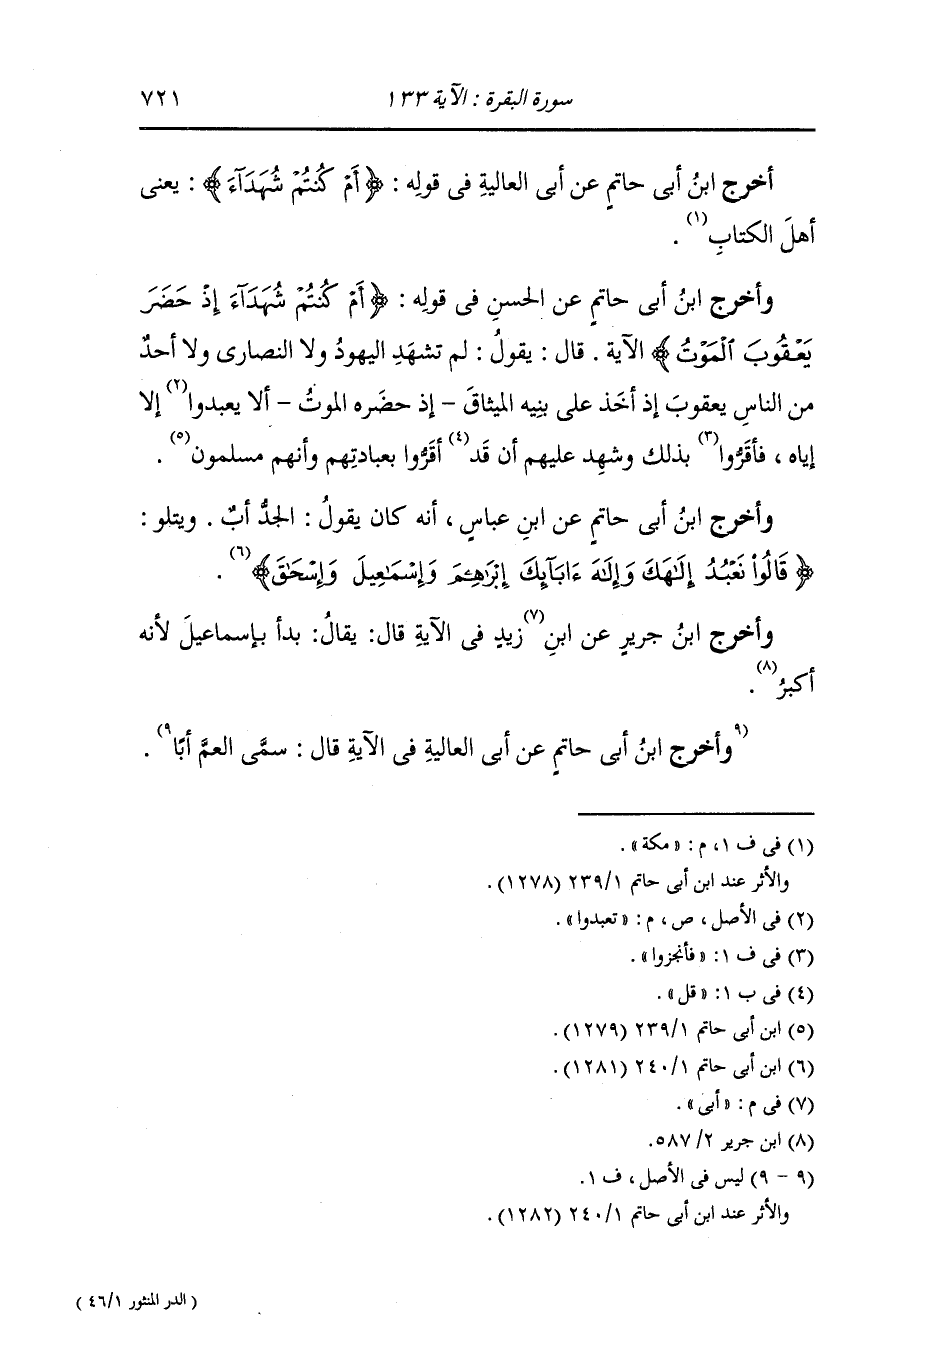 سورة البقرة : الآية ١٣٣
٧٢١
أخرج ابنُ أبى حاتمٍ عن أبى العاليةِ فى قولِه : ﴿ أَمْ كُنتُمْ شُهَدَآءَ ﴾ : يعنى
أهلَ الكتابِ(١) .
وأخرج ابنُ أبى حاتمٍ عن الحسنِ فى قولِه : ﴿ أَمْ كُنتُمْ شُهَدَآءَ إِذْ حَضَرَ
يَعْقُوبَ ٱلْمَوْتُ ﴾ الآية . قال : يقولُ : لم تشهَدِ اليهودُ ولا النصارى ولا أحدٌ
من الناسِ يعقوبَ إذ أخَذ على بنِيه الميثاقَ - إذ حضَره الموتُ - ألا يعبدوا(٢) إلا
إياه ، فأقَرُّوا(٣) بذلك وشهِد عليهم أن قَد(٤) أقَرُّوا بعبادتِهم وأنهم مسلمون(٥) .
وأخرج ابنُ أبى حاتمٍ عن ابنِ عباسٍ ، أنه كان يقولُ : الجدُّ أبٌ . ويتلو :
﴿ قَالُواْ نَعْبُدُ إِلَٰهَكَ وَإِلَٰهَ ءَابَآئِكَ إِبْرَٰهِـۧمَ وَإِسْمَٰعِيلَ وَإِسْحَٰقَ﴾(٦) .
وأخرج ابنُ جريرٍ عن ابنِ(٧) زيدٍ فى الآيةِ قال: يقالُ: بدأ بإسماعيلَ لأنه
أكبرُ(٨) .
(٩وأخرج ابنُ أبى حاتمٍ عن أبى العاليةِ فى الآيةِ قال : سمَّى العمَّ أبًا٩) .
(١) فى ف ١، م : « مكة » .
والأثر عند ابن أبى حاتم ٢٣٩/١ (١٢٧٨) .
(٢) فى الأصل ، ص ، م : « تعبدوا» .
(٣) فى ف ١: « فأنجزوا » .
(٤) فى ب ١: « قل» .
(٥) ابن أبى حاتم ٢٣٩/١ (١٢٧٩) .
(٦) ابن أبى حاتم ٢٤٠/١ (١٢٨١) .
(٧) فى م : « أبى» .
(٨) ابن جرير ٢/ ٥٨٧.
(٩ - ٩) ليس فى الأصل ، ف ١.
والأثر عند ابن أبى حاتم ٢٤٠/١ (١٢٨٢) .
( الدر المنثور ٤٦/١ )